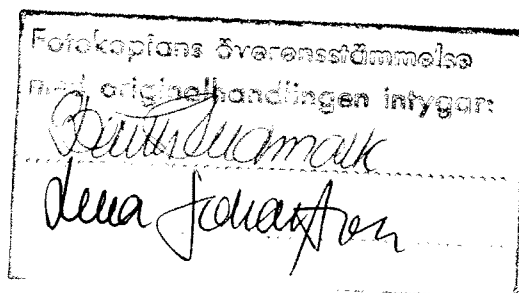 Fotokopians överensstämmelse
med originalhandlingen intygar:
Lena Johansson